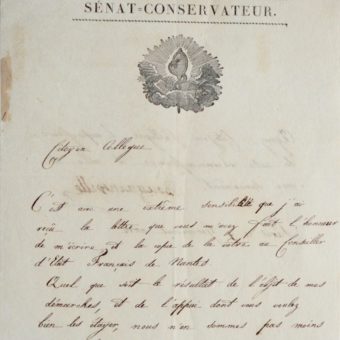 SÉNAT=CONSERVATEUR.
Citoyen Collegue
C'est avec une extrême sensibilité que j'ai
reçu la lettre que vous m'avez fait l'honneur
de m'écrire et la copie de la votre au Conseiller
d'Etat Français de Nantes
Quel que soit le résultat de l'effet de mes
démarches, et de l'appui dont vous voulez
bien les étayer, nous n'en sommes pas moins